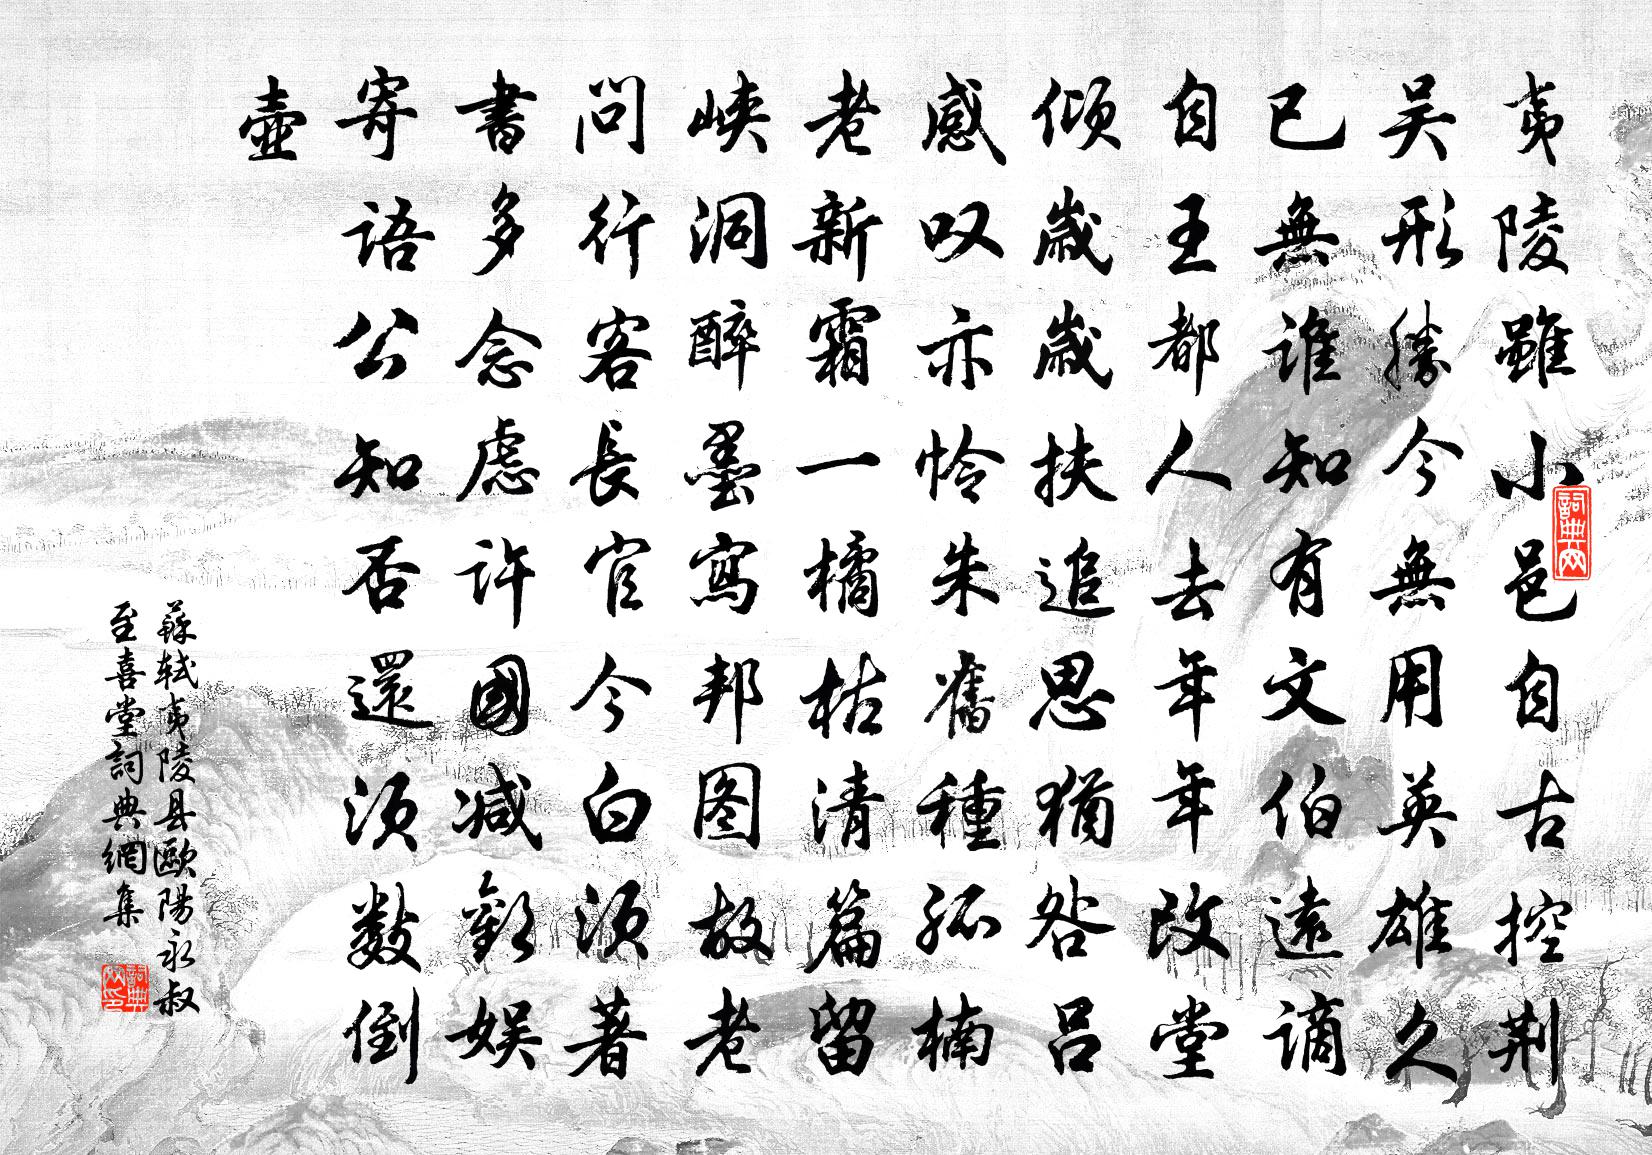 夷陵雖小邑自古控荆
吴形勝今無用英雄久
已無誰知有文伯遠谪
自王都人去年年改堂
倾歲歲扶追思猶咎吕
感叹亦怜朱舊種孤楠
老新霜一橘枯清篇留
峡洞醉墨寫邦图故老
问行客長官今白须著
書多念慮许國减歡娱
寄语公知否還须数倒
壶
蘇轼夷陵县歐陽永叔
至喜堂詞典網集
詞典网
詞典网印